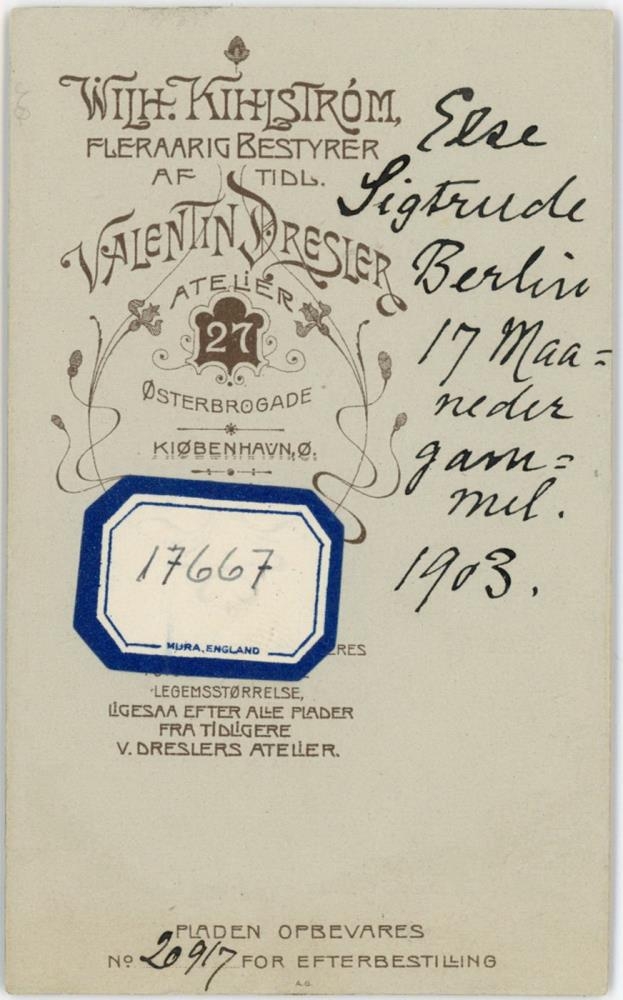 WILH. KIHLSTRÓM,
FLERAARIG BESTYRER
AF TIDL.
VALENTIN DRESLER
ATELIER
27
ØSTERBROGADE
KIØBENHAVN, Ø.
Else
Sigtrude
Berlin
17 Maa=
neder
gam=
mel.
1903.
17667
MURA, ENGLAND
RES
LEGEMSSTØRRELSE,
LIGESAA EFTER ALLE PLADER
FRA TIDLIGERE
V. DRESLERS ATELIER.
PLADEN OPBEVARES
No 20917 FOR EFTERBESTILLING
A.G.